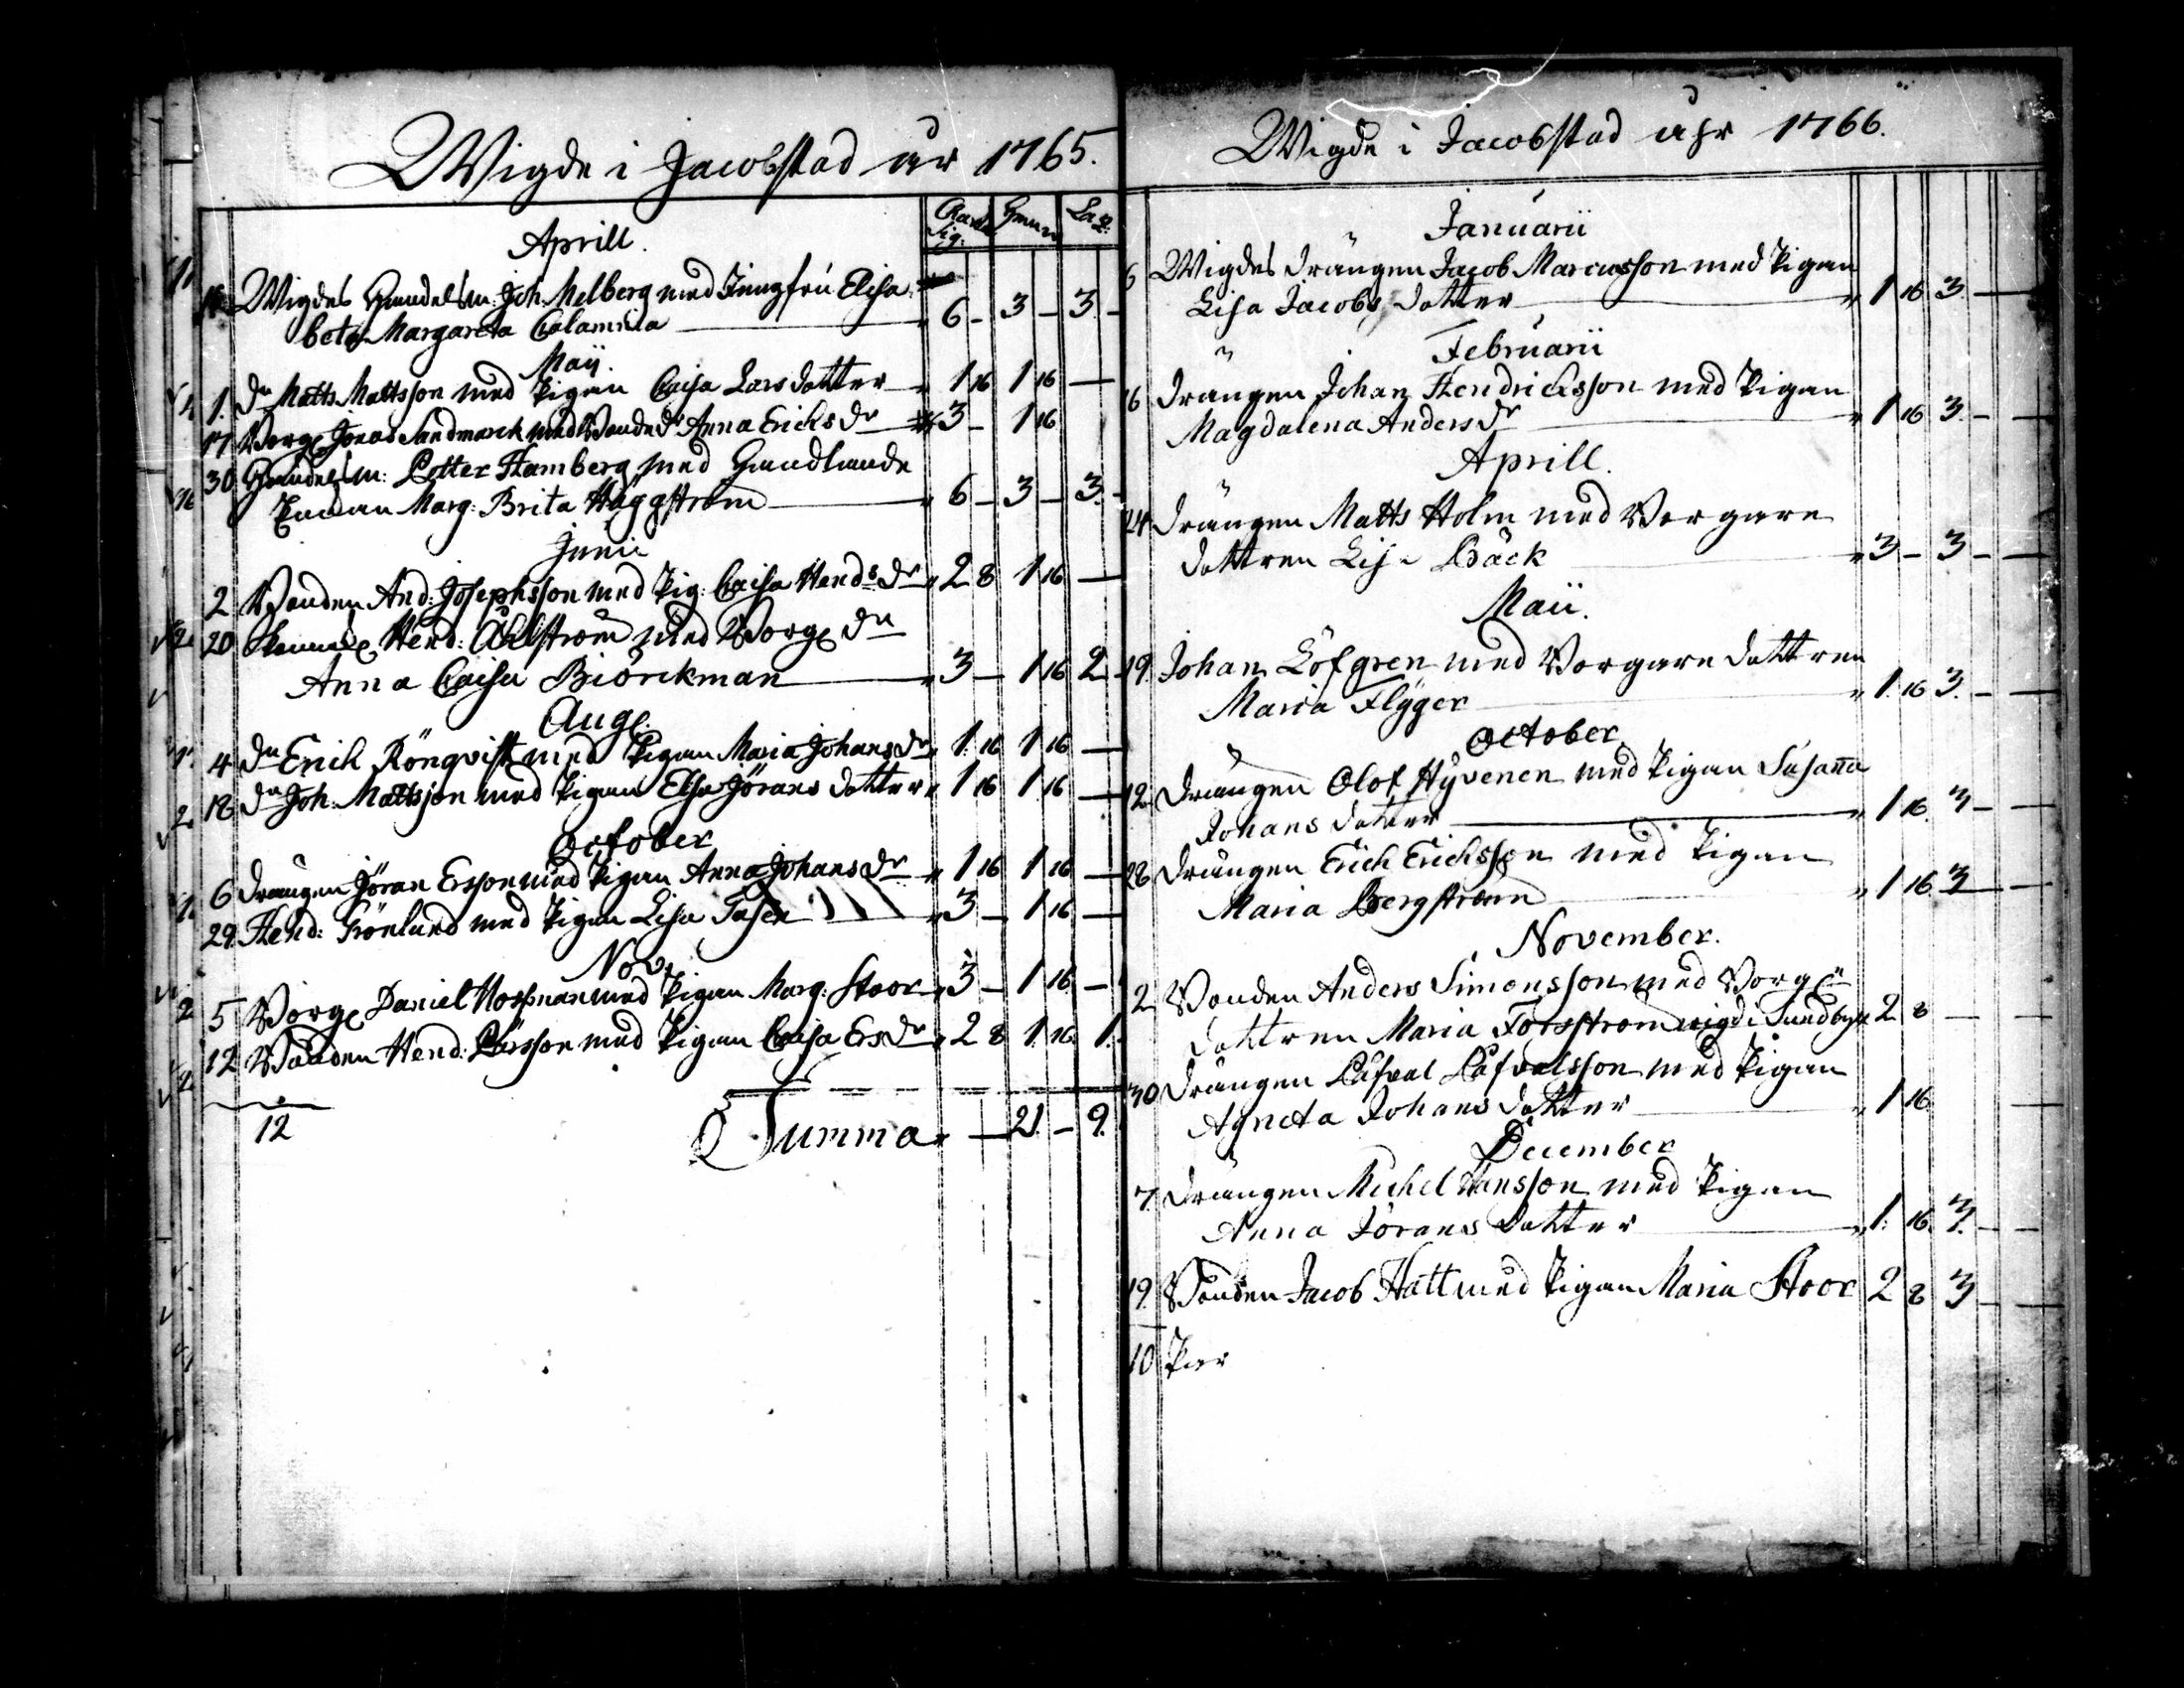 Wigde i Jacobstad år 1765.
Aprill.
Wigdes Handelsm: Joh. Melberg med Jungfru Elisa
beth Margareta Calamnia 6 - 3 - 3. -
Maij.
1. Dn Matts Mattsson med Pigan Caisa Lars dotter 1 16 1 16 —
17 Borg. Jonas Sandmarck med Anna Erichs dr 3 - 1 16
30 Handelsm: Petter Hamberg med
Marg: Brita Häggström 6 - 3 - 3. -
Junii
2 Bonden And: Josephsson med Pig: Caisa Hends dr 2 8 1 16 —
20 Hend: Ahlström med Borg. dn
Anna Caisa Biörckman 3 — 1 16 2
Aug.
4 Dn Erich Rönqvist med Pigan Maria Johans dr 1. 16 1 16 —
18 Dn Joh. Mattsson med Pigan Elsa Jörans dotter 1 16 1 16 —
October
6 Drängen Jöran Ersson med Pigan Anna Johans dr 1 16 1 16 —
29. Hend: Grönlund med Pigan Lisa 3 — 1 16 —
Nov.
5 Borg. Daniel med Pigan Marg: Stoor 3 — 1 16 —
12 Bonden Hend: Larsson med Pigan Caisa Ers dr 2 8 1. 16 1.
12 Summa — 21. — 9.
Wigde i Jacobstad åhr 1766.
Januarii
6 Wigdes Drängen Jacob Marcusson med Pigan
Lisa Jacobs dotter 1 16 3. —
Februarii
16 Drängen Johan Hendricksson med Pigan
Magdalena Anders dr 1 16 3. - —
Aprill.
24 Drängen Matts Holm med Borgare
dottren Lisa Bäck 3 — 3 — —
Maii.
19. Johan Löfgren med Borgare dottren
Maria Flyger 1. 16 3. - —
October
12. Drängen Olof Hyvenen med Pigan Susanna
Johans dotter 1 16. 3 - —
28 Drängen Erich Erichsson med Pigan
Maria Bergström 1 16 3 —
November.
2. Bonden Anders Simonsson med Borg.
dottren Maria Forsström wigd i Sundby 2 8 — —
30 Drängen Påfval Påfvalsson med Pigan
Agneta Johans dotter 1 16
December
7. Drängen Michel Hansson med Pigan
Anna Jörans dotter 1. 16. 3. - —
19. Bonden Jacob Hatt med Pigan Maria Stoor 2 8 3 - —
10 Par